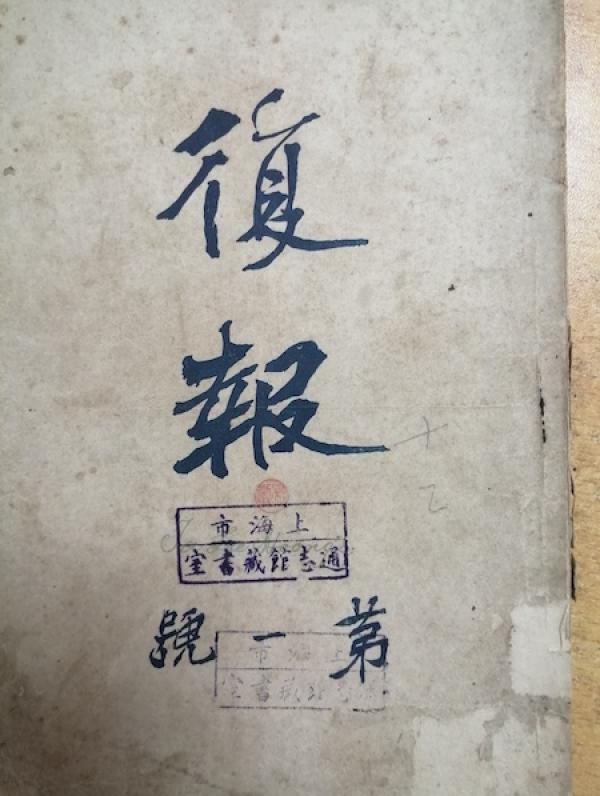 復報
上海市
通志館藏書室
第一號
上海市
通志館藏書室